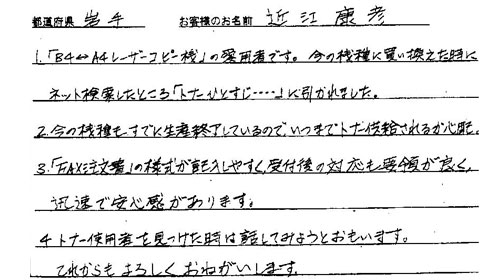 都道府県 岩手 お客様のお名前 近江康彦
1.「B4⇔A4レーザーコピー機」の愛用者です。今の機種に買い換えた時に
ネット検索したところ「トナーひとすじ‥‥」に引かれました。
2.今の機種もすでに生産終了しているので、いつまでトナー供給されるか心配。
3.「FAX注文書」の様式が記入しやすく、受付後の対応も要領が良く、
迅速で安心感があります。
4 トナー使用者を見つけた時は話してみようとおもいます。
これからもよろしくおねがいします。